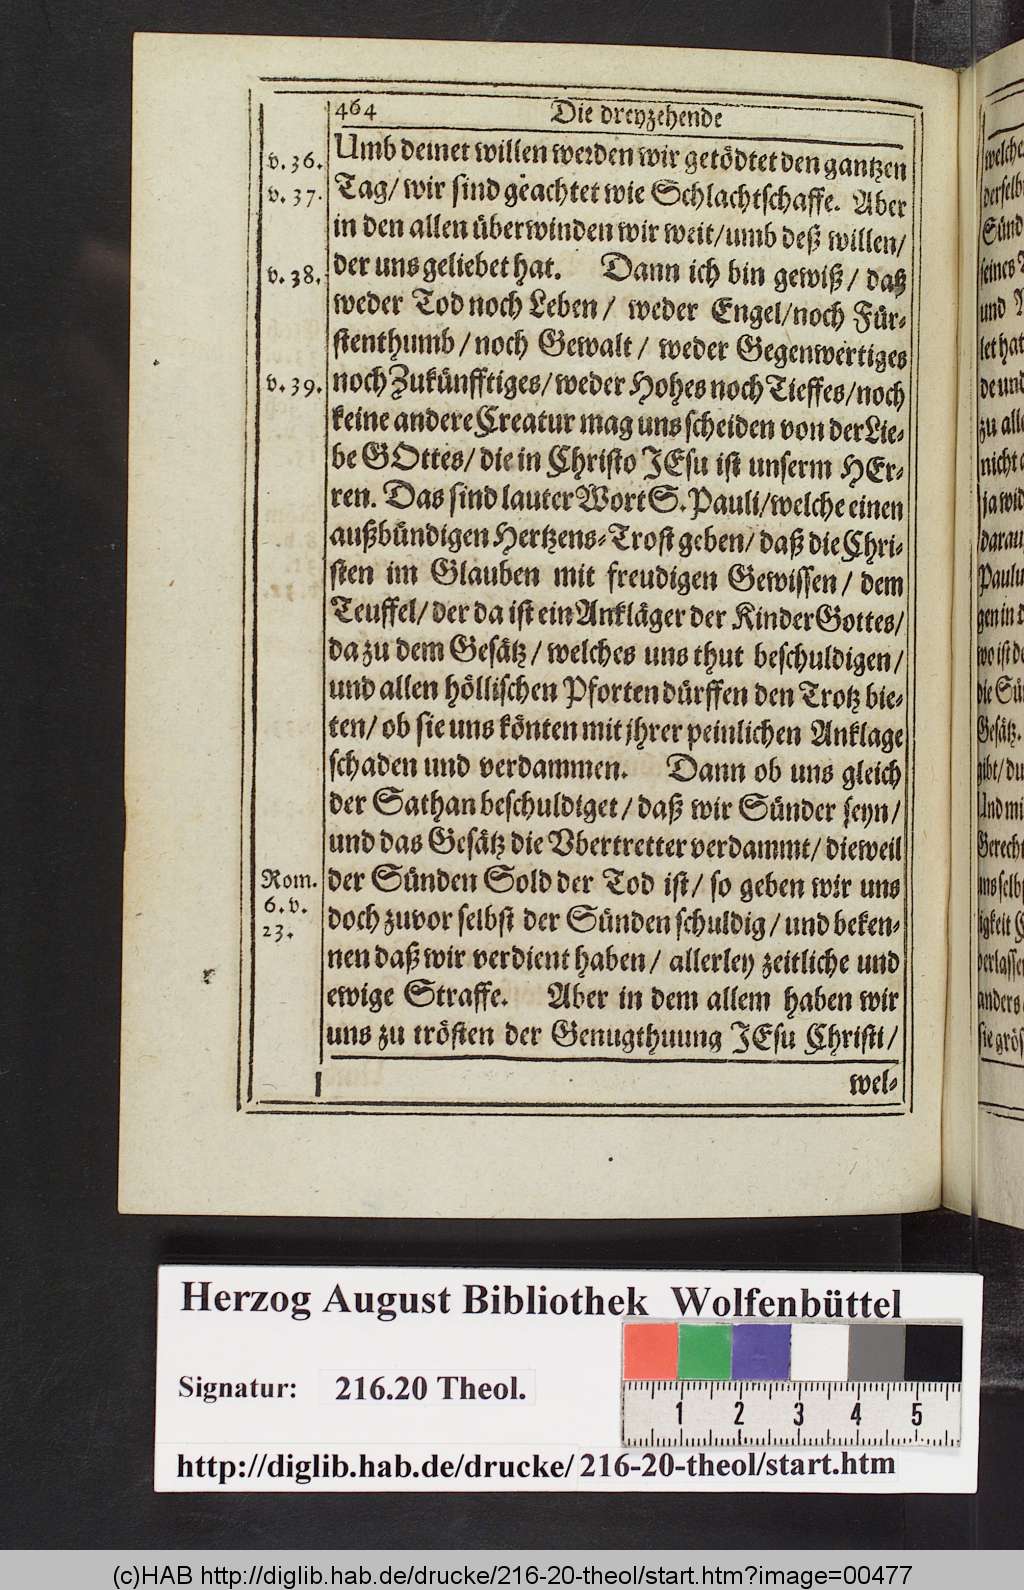 464 Die dreyzehende
v. 36. Umb deinet willen werden wir getödtet den gantzen
v. 37. Tag/ wir sind geachtet wie Schlachtschaffe. Aber
in den allen überwinden wir weit/ umb deß willen/
v. 38. der uns geliebet hat. Dann ich bin gewiß/ daß
weder Tod noch Leben/ weder Engel/ noch Für-
stenthumb/ noch Gewalt/ weder Gegenwertiges
v. 39. noch Zukünfftiges/ weder Hohes noch Tieffes/ noch
keine andere Creatur mag uns scheiden von der Lie-
be GOttes/ die in Christo JEsu ist unserm HEr-
ren. Das sind lauter Wort S. Pauli/ welche einen
außbündigen Hertzens-Trost geben/ daß die Chri-
sten im Glauben mit freudigen Gewissen/ dem
Teuffel/ der da ist ein Ankläger der Kinder Gottes/
dazu dem Gesätz/ welches uns thut beschuldigen/
und allen höllischen Pforten dürffen den Trotz bie-
ten/ ob sie uns könten mit jhrer peinlichen Anklage
schaden und verdammen. Dann ob uns gleich
der Sathan beschuldiget/ daß wir Sünder seyn/
und das Gesätz die Vbertretter verdammt/ dieweil
Rom. 6. v. 23. der Sünden Sold der Tod ist/ so geben wir uns
doch zuvor selbst der Sünden schuldig/ und beken-
nen daß wir verdient haben/ allerley zeitliche und
ewige Straffe. Aber in dem allem haben wir
uns zu trösten der Genugthuung JEsu Christi/
wel-
welche
derselb
Sünd
seines
und
let hat
de und
zu alle
nicht
ja wid
darau
Paulu
gen in d
wo ist de
die Sü
Gesätz.
gibt/ du
Und mi
Gerecht
uns selbs
igkeit
verlassen
anders
sie grös
Herzog August Bibliothek Wolfenbüttel
Signatur: 216.20 Theol.
1 2 3 4 5
http://diglib.hab.de/drucke/216-20-theol/start.htm
(c)HAB http://diglib.hab.de/drucke/216-20-theol/start.htm?image=00477